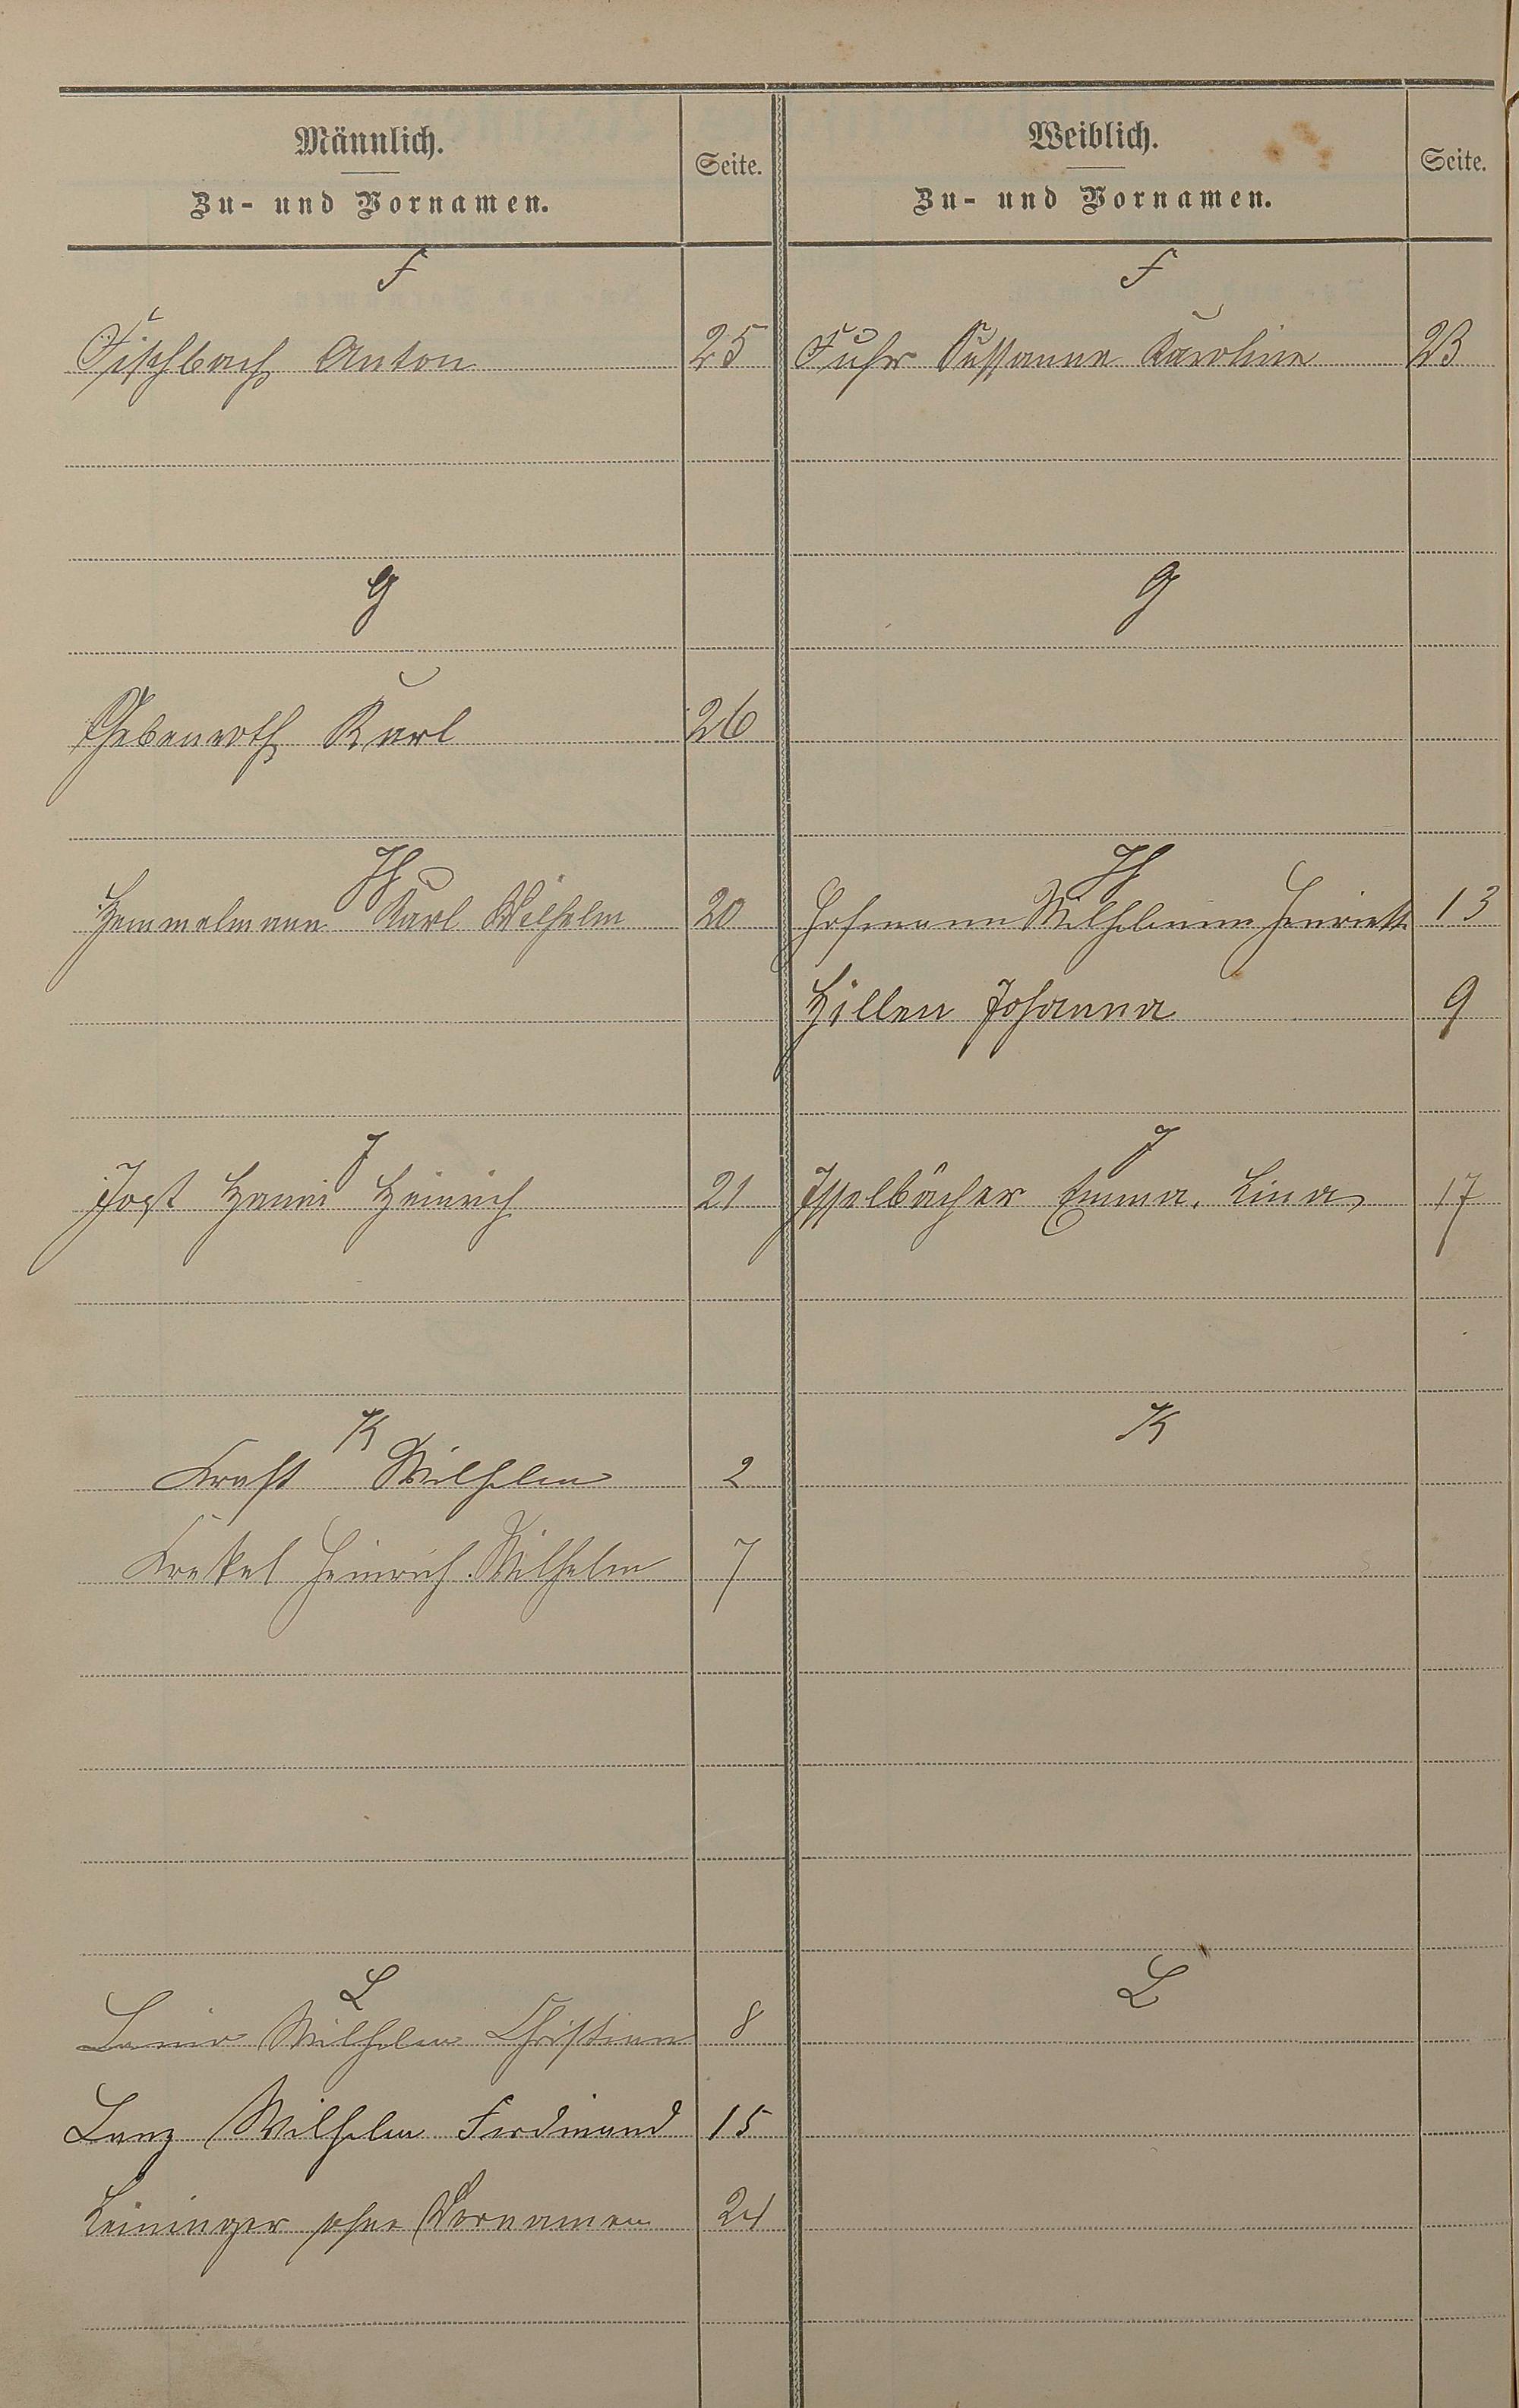 Männlich.
Zu- und Vornamen.
Seite.
Weiblich.
Zu- und Vornamen.
Seite.
F
F
Fischbach Anton 25
Fuhr Sussanna Karoline 23
G
G
Ghebenroth Karl 26
H
H
Hemmelmann Karl Wilhelm 20
Hofmann Wilhelmine Henriette 13
Hillen Johanna 9
J
J
Jost Heinrich 21
Isselbächer Emma, Lina 17
K
K
Kraft Wilhelm 2
Krekel Heinrich Wilhelm 7
L
L
Wilhelm Christian 8
Lanz Wilhelm Ferdinand 15
Leininger ohne Vornamen 24